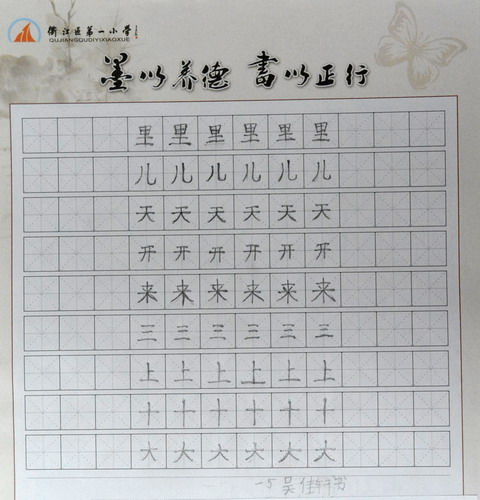 衢江区第一小学
QUJIANGQUDIYIXIAOXUE
墨以养德 书以正行
里里里里里里
儿儿儿儿儿儿
天天天天天天
开开开开开开
来来来来来来
三三三三三三
上上上上上上
十十十十十十
大大大大大大
一5 吴佳